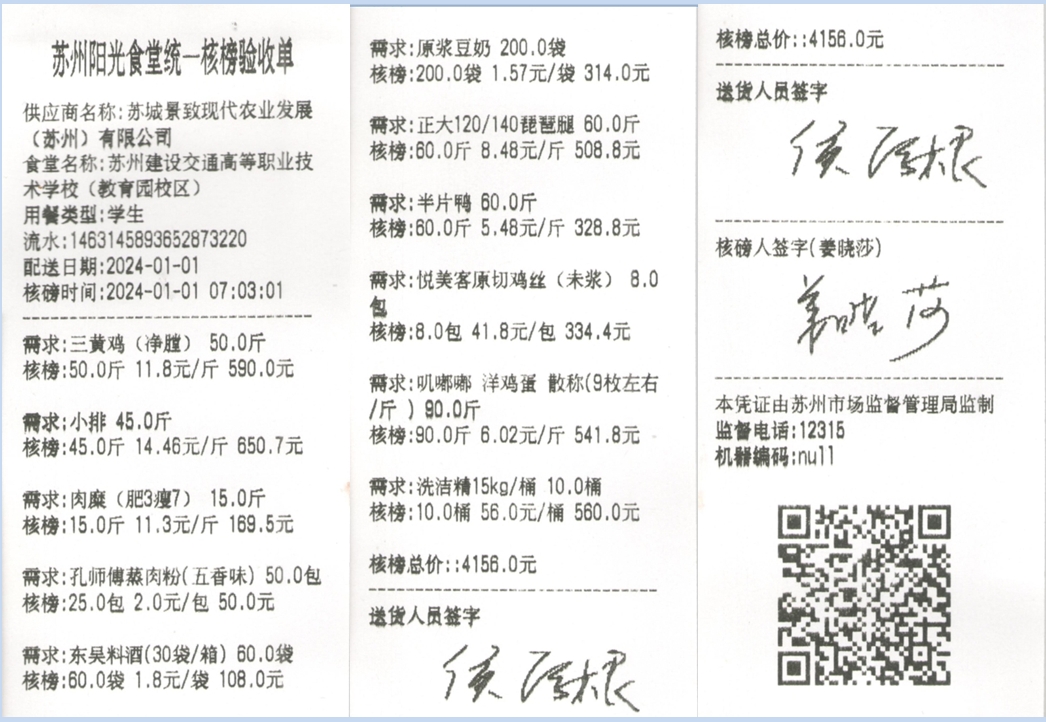 苏州阳光食堂统一核榜验收单
供应商名称:苏城景致现代农业发展
（苏州）有限公司
食堂名称:苏州建设交通高等职业技
术学校（教育园校区）
用餐类型:学生
流水:1463145893652873220
配送日期:2024-01-01
核磅时间:2024-01-01 07:03:01
需求:三黄鸡（净膛） 50.0斤
核榜:50.0斤 11.8元/斤 590.0元
需求:小排 45.0斤
核榜:45.0斤 14.46元/斤 650.7元
需求:肉糜（肥3瘦7） 15.0斤
核榜:15.0斤 11.3元/斤 169.5元
需求:孔师傅蒸肉粉(五香味) 50.0包
核榜:25.0包 2.0元/包 50.0元
需求:东吴料酒(30袋/箱) 60.0袋
核榜:60.0袋 1.8元/袋 108.0元
需求:原浆豆奶 200.0袋
核榜:200.0袋 1.57元/袋 314.0元
需求:正大120/140琵琶腿 60.0斤
核榜:60.0斤 8.48元/斤 508.8元
需求:半片鸭 60.0斤
核榜:60.0斤 5.48元/斤 328.8元
需求:悦美客原切鸡丝（未浆） 8.0
包
核榜:8.0包 41.8元/包 334.4元
需求:叽嘟嘟 洋鸡蛋 散称(9枚左右
/斤 ) 90.0斤
核榜:90.0斤 6.02元/斤 541.8元
需求:洗洁精15kg/桶 10.0桶
核榜:10.0桶 56.0元/桶 560.0元
核榜总价::4156.0元
送货人员签字
核榜总价::4156.0元
送货人员签字
核磅人签字(姜晓莎)
姜晓莎
本凭证由苏州市场监督管理局监制
监督电话:12315
机器编码:null